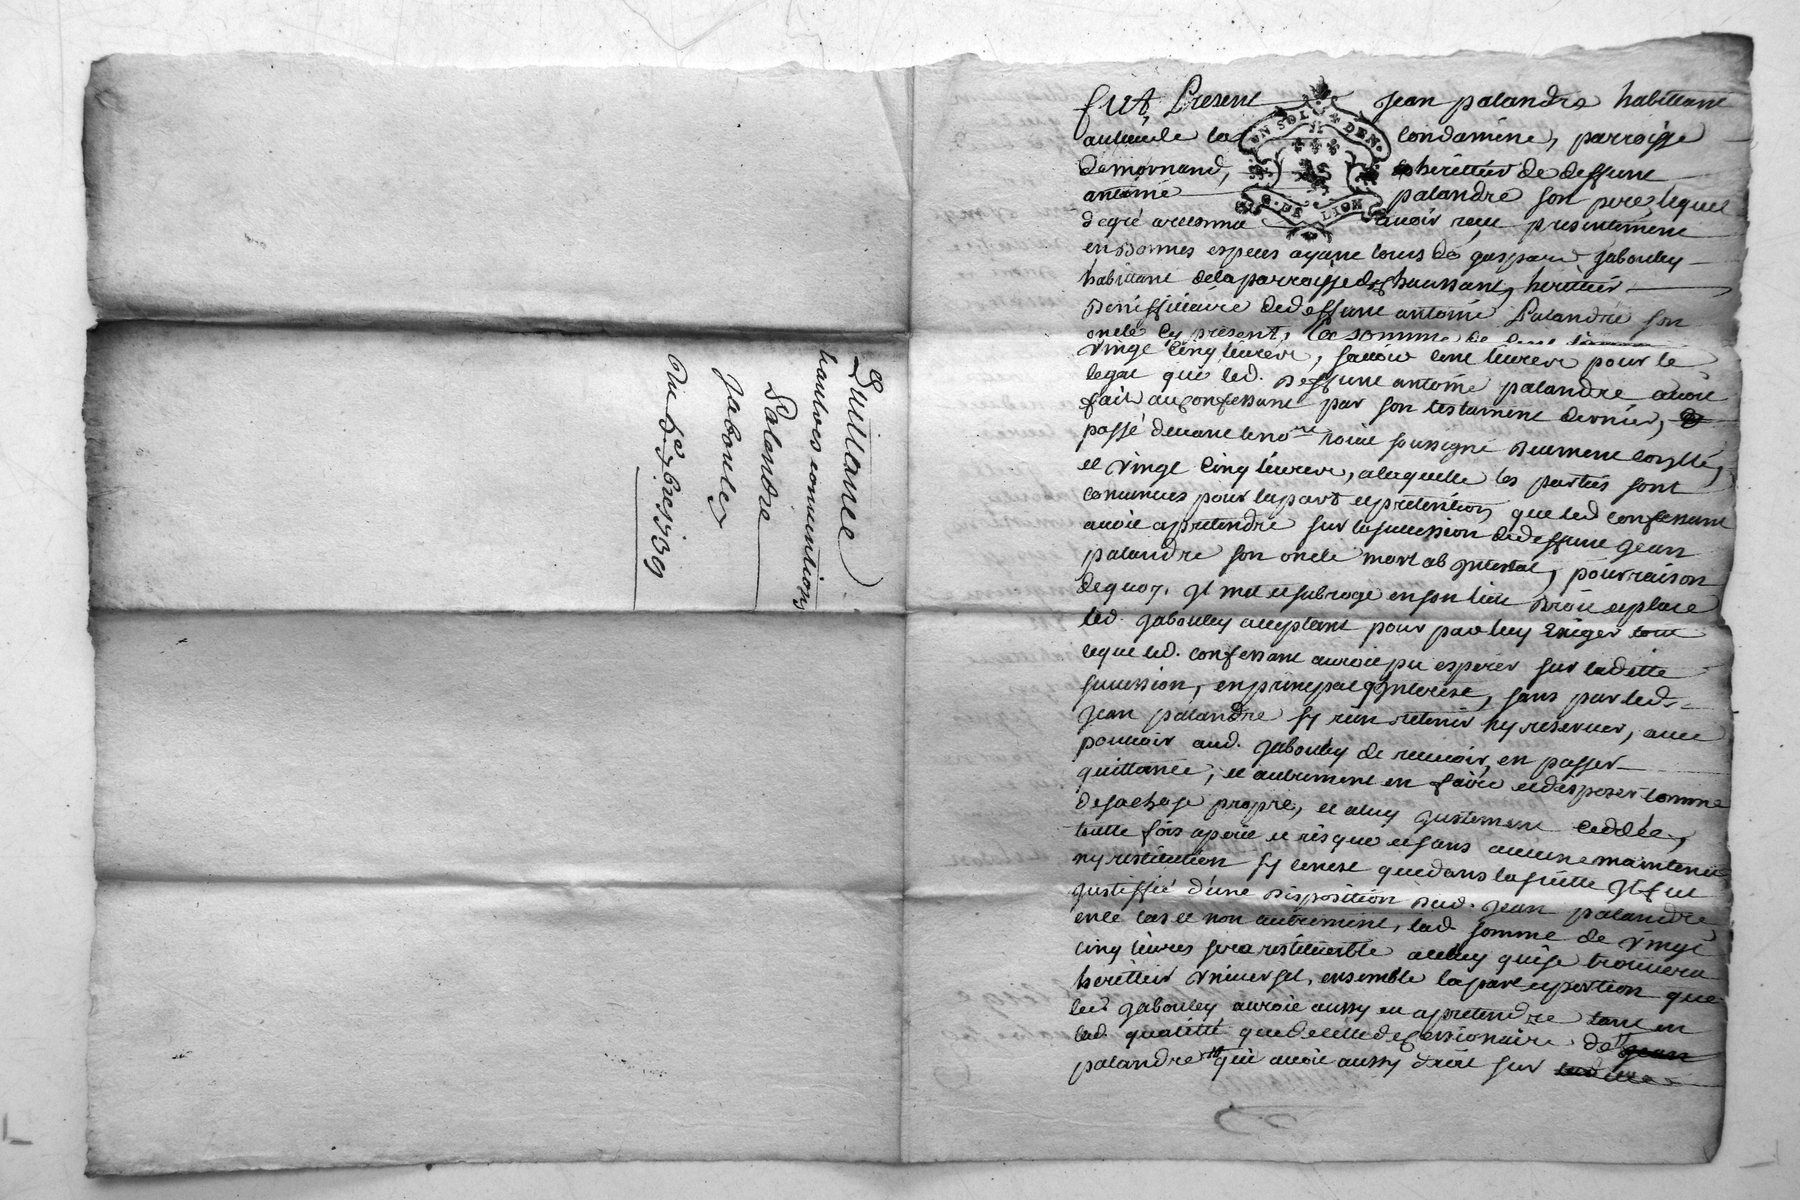 Quittance
hautres conventions
Palandre
Jabouley
Du 5e 7bre 1739
Fut Present Jean palandre habittant
au lieu de la Condamine, parroisse
de mornand, herittier de deffunt
antoine palandre son pere lequel
de gré a reconnu avoir reçu presentement
en bonnes especes ayant cours de gaspard Jabouley
habittant de la parroisse de Chaussant, herittier
beneffitiaire de deffunt antoine Palandre son
oncle cy present, la somme de cent
vingt cinq livres, savoir cent livres pour le
legat que led. deffunt antoine palandre avoit
fait au confessant par son testament dernier,
passé devant le nore roial soussigné deument conllé,
et vingt cinq livres, a laquelle les parties sont
convenues pour la part et pretention que led confessant
avoit a pretendre sur la succession de deffunt Jean
palandre son oncle mort ab intestat, pour raison
de quoy, il met et subroge en son lieu droit et place
led. Jabouley acceptant pour par luy exiger tout
ce que led. confessant auroit pu esperer sur laditte
succession, en principal et interest, sans par led.
Jean palandre sy rien retenir ny reserver, avec
pouvoir aud. Jabouley de recevoir, en passer
quittance, et autrement en faire et disposer comme
de sa chose propre, et a luy justement ceddée,
toutte fois a peril et risque et sans aucune maintenue
ny restitution sy ce n'est que dans la suitte il fut
justiffié d'une disposition dud. Jean palandre
en ce cas et non autrement, lad. somme de vingt
cinq livres sera restituable a celuy qui se trouvera
herittier universel, ensemble la part et portion que
led Jabouley auroit aussy eu a pretendre tant en
lad. qualitté que de celle de cessionnaire de Jean
palandre qui avoit aussy droit sur
UN SOL DEN.
G. DE LION